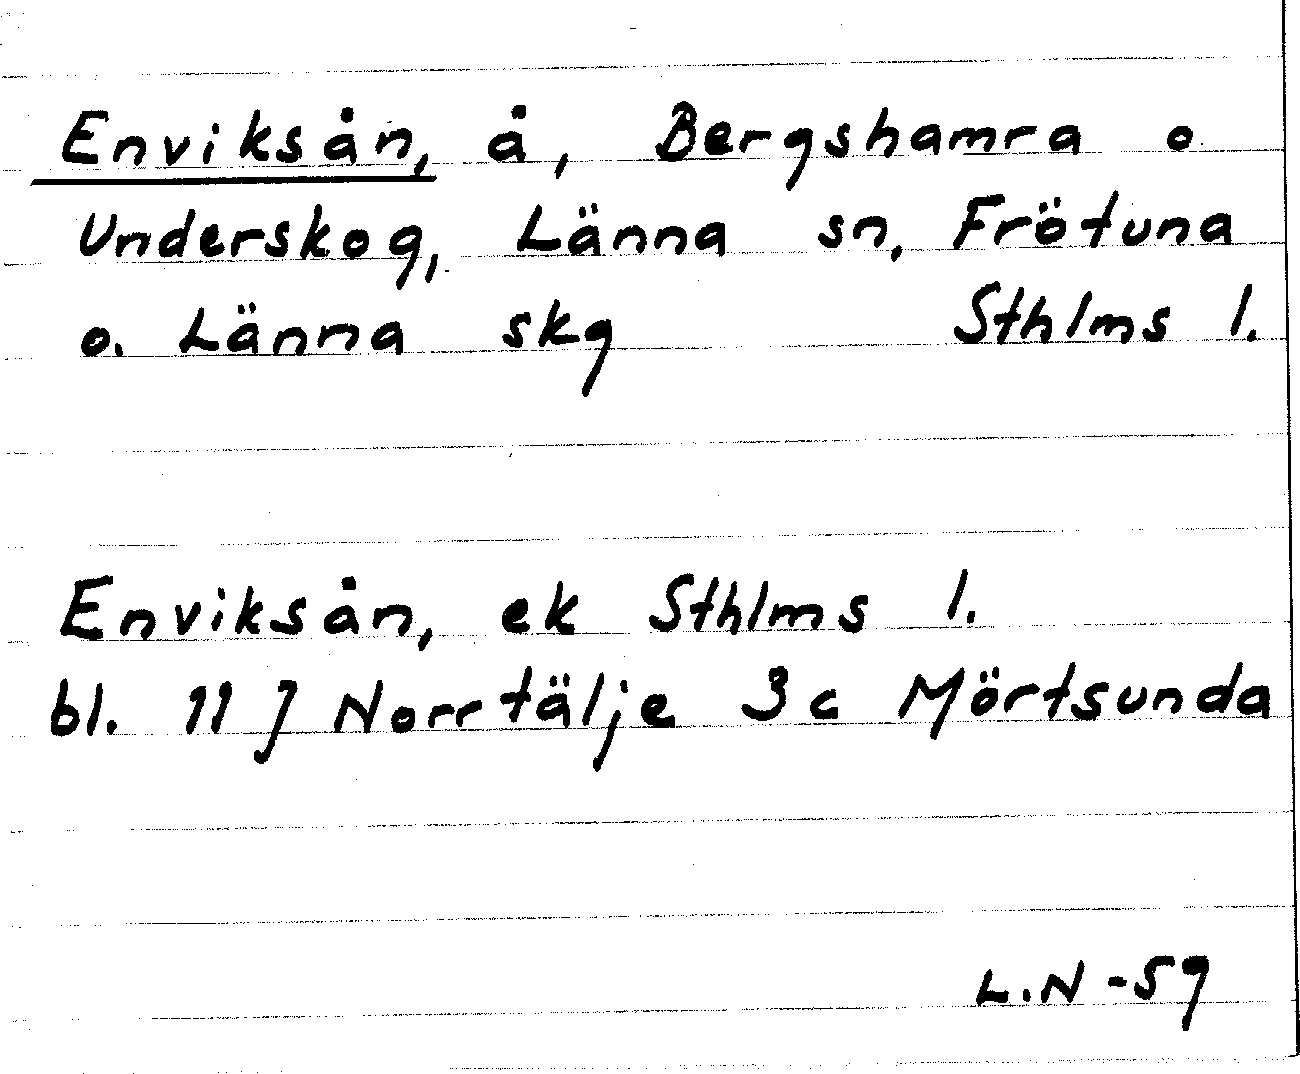 Enviksån, å, Bergshamra o
Underskog, Länna sn, Frötuna
o. Länna skg Sthlms l.
Enviksån, ek Sthlms l.
bl. 11 J Norrtälje 3 c Mörtsunda
L.N -59